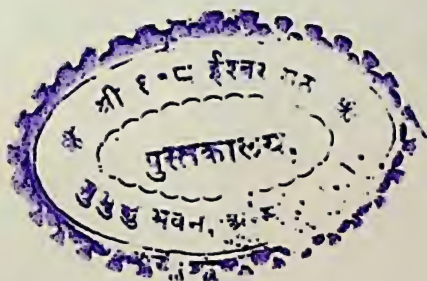 श्री १०८ ईश्वर मठ
पुस्तकालय.
मुमुक्षु भवन,